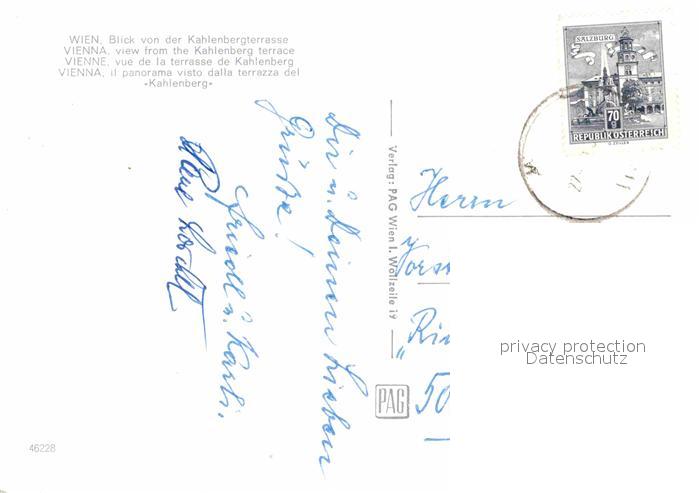 WIEN, Blick von der Kahlenbergterrasse
VIENNA, view from the Kahlenberg terrace
VIENNE, vue de la terrasse de Kahlenberg
VIENNA, il panorama visto dalla terrazza del
«Kahlenberg»
Dir u. Deinen Lieben
Grüße!
Friedl u. Karli.
Verlag: PAG Wien I. Wollzeile 19
PAG
SALZBURG
70
g
REPUBLIK ÖSTERREICH
Herrn
50
privacy protection
Datenschutz
46228